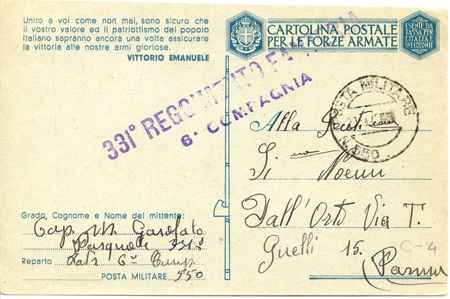 Unito a voi come non mai, sono sicuro che
il vostro valore ed il patriottismo del popolo
italiano sapranno ancora una volta assicurare
la vittoria alle nostre armi gloriose.
VITTORIO EMANUELE
CARTOLINA POSTALE
PER LE FORZE ARMATE
ESENTE DA
TASSA PER
L'ITALIA
331° REGGIMENTO FANTERIA
6ª COMPAGNIA
POSTA MILITARE
N. 550
Alla
Noemi
Dall'Orto Via T.
Guelli 15.
C-4
(Parma)
Grado, Cognome e Nome del mittente:
Cap. M Garofalo
Pasquale 331°
Reparto 6ª Comp.
POSTA MILITARE 550